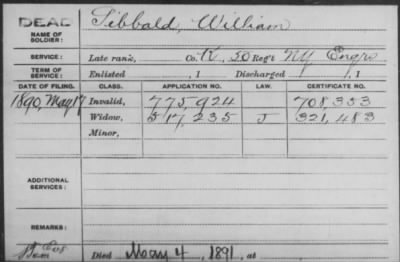 DEAD
NAME OF SOLDIER: Tibbald, William
SERVICE: Late rank, Co. K, 50 Reg't NY Engrs
TERM OF SERVICE: Enlisted , 1 Discharged , 1
DATE OF FILING. CLASS. APPLICATION NO. LAW. CERTIFICATE NO.
1890, May 17 Invalid, 775,924 708,353
Widow, 517,235 J 321,483
Minor,
ADDITIONAL SERVICES:
REMARKS:
Died May 4, 1891, at